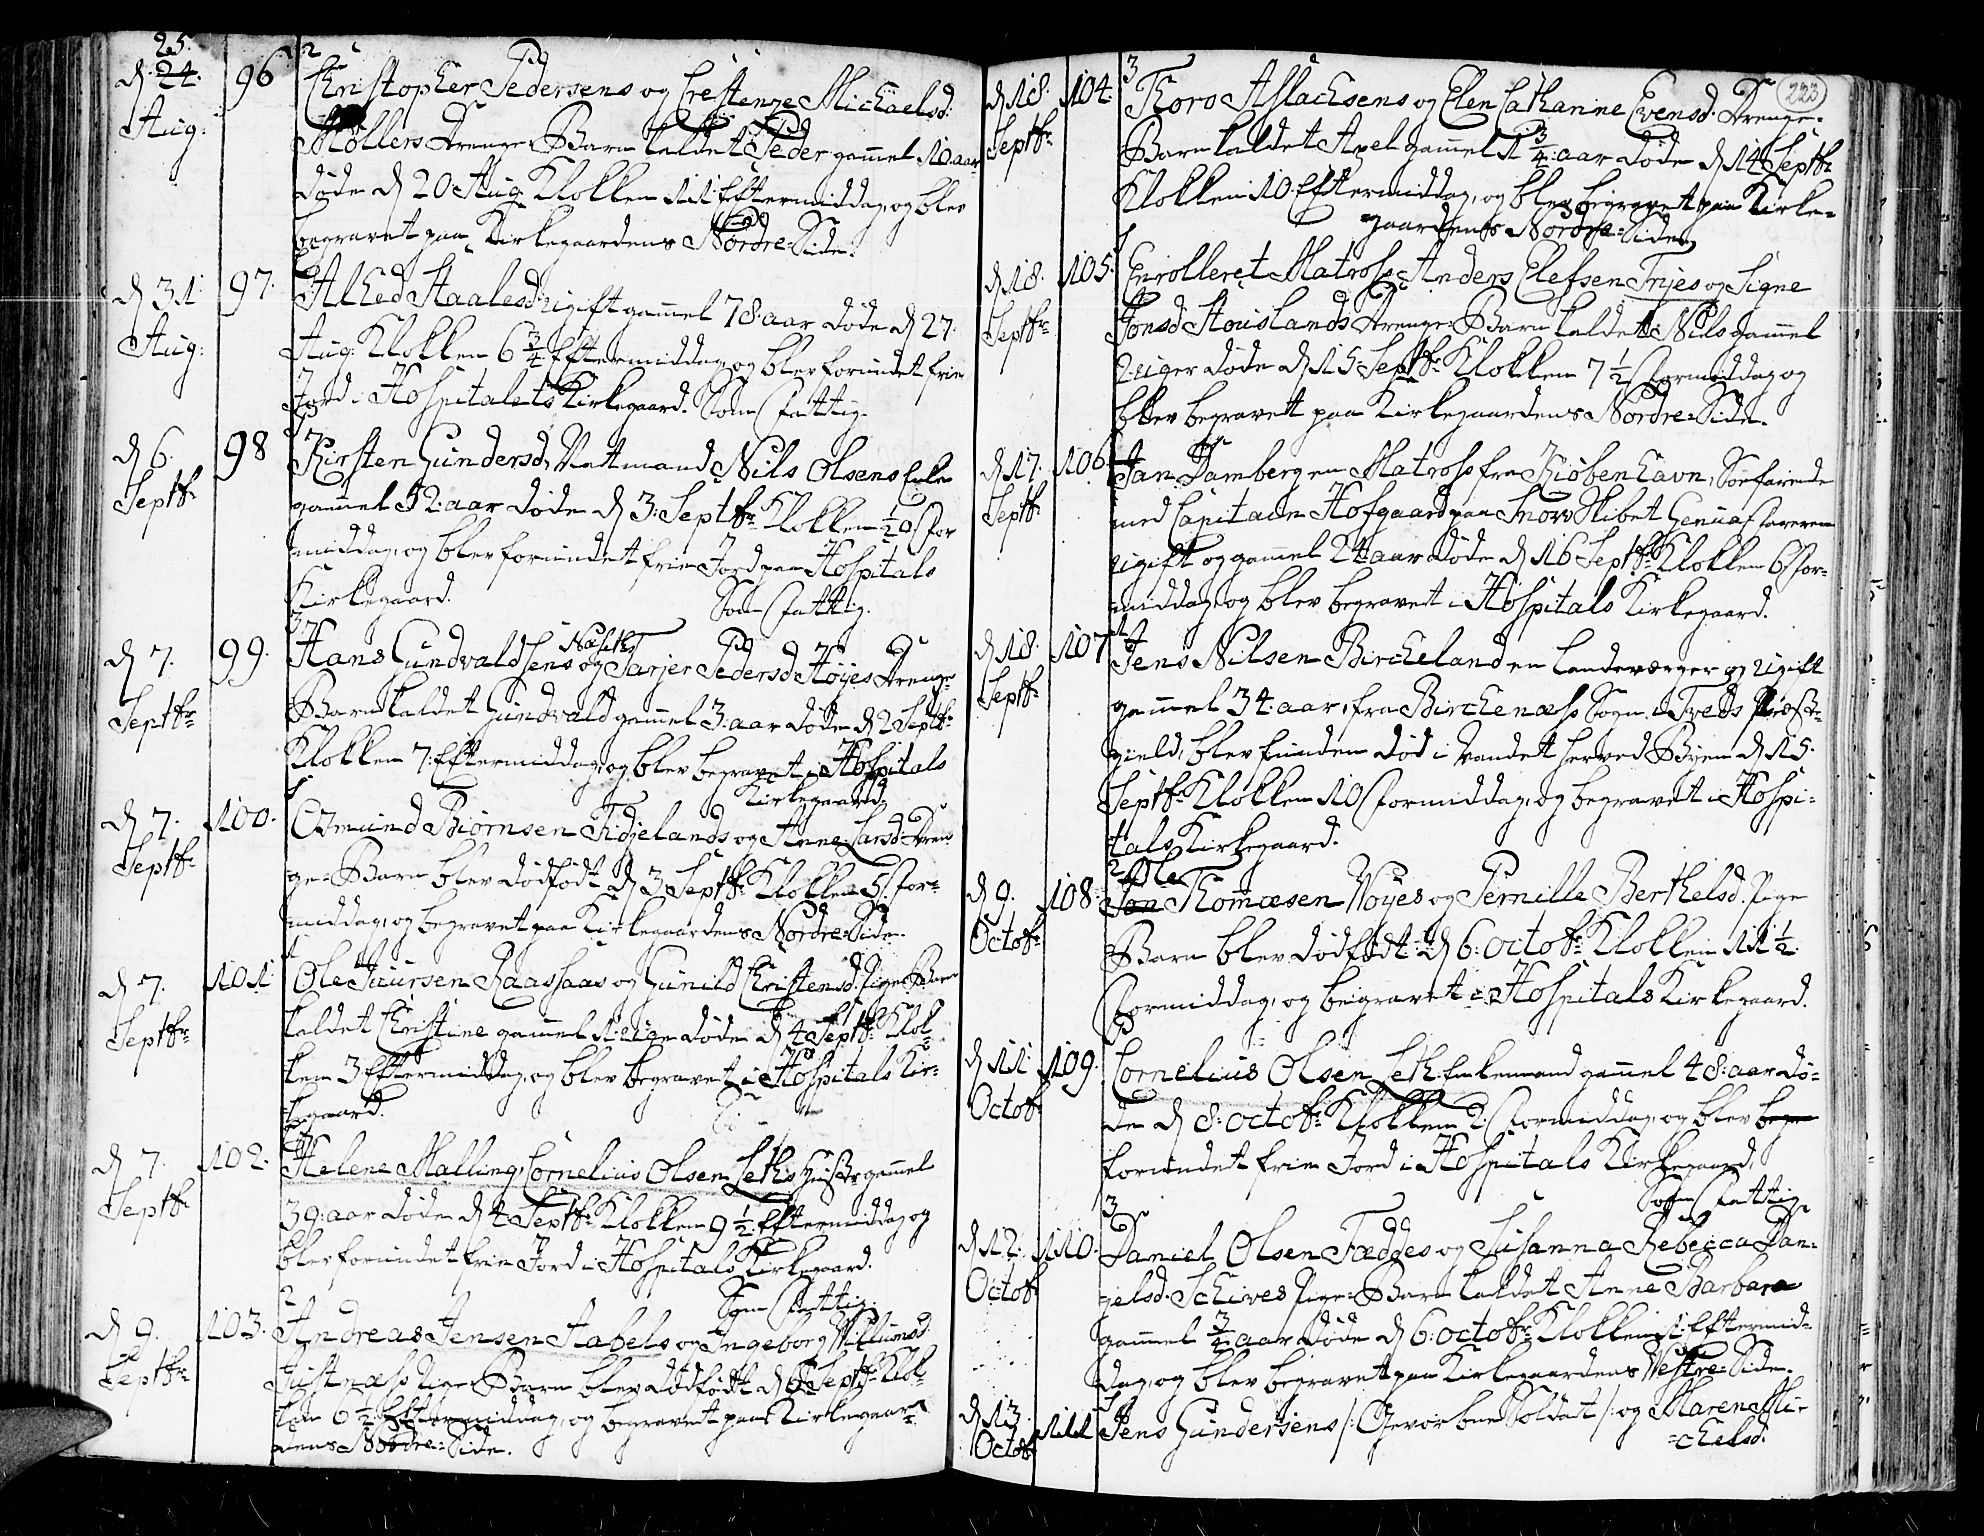 25.
d. 24. 96 2 Christopher Pedersens og Crestenze Michaelsd:
Aug: Møllers Drenge Barn kaldet Peder gamel 10 aar
døde d 20 Aug Klokken 11 Eftermiddag, og blev
begravet paa Kirkegaardens Nordre-Side.
d 31 97. Alhed Staalesd: ugift gamel 78. aar døde d 27.
Aug: Aug: Klokken 6 3/4 Eftermiddag, og blev forundet frie
Jord i Hospitalets Kirkegaard. Som Fattig.
d 6. 98 Kirsten Gundersd. Natmand Nils Olsens Enke
Septbr gammel 52. aar døde d 3. Septbr Klokken 10 1/2 For
middag, og blev forundet frie Jord paa Hospitals
Kirkegaard. Som Fattig.
d 7. 99. 3 Hans Gundvaldsens og Tarjer Pedersd Høyes Drenge-
Septbr Barn kaldet Gundvald gamel 3. aar døde d 2 Septbr
Klokken 7. Eftermiddag, og blev begravet i Hospitals
Kirkegaard
d 7. 100. Osmund Biørnsen Fidjelands og Anne Larsd. Dren-
Septbr ge-Barn blev dødfødt d 3 Septbr Klokken 5. For-
middag, og begravet paa Kirkegaardens Nordre-Side.
d 7. 101 Ole Knudsen Raassaas og Gunild Christensd. Pige-Barn
Septbr kaldet Christine gamel 1. uge døde d 4 Septbr Klok-
ken 3 Eftermiddag, og blev begravet i Hospitals Kir-
kegaard.
d 7. 102. Helene Malling, Cornelius Olsen Leths Hustr. gamel
Septbr 39. aar døde d 4 Septbr Klokken 9 1/2 Eftermiddag og
blev forundet frie Jord i Hospitals Kirkegaard.
Som Fattig.
d 9. 103. 2 Andreas Jensen Aabels og Ingeborg Willumsd.
Septbr Justnæss Pige Barn blev dødfødt d 6 Septbr Klok-
ken 6 1/2 Eftermiddag, og begravet paa Kirkegaar-
dens Nordre-Side.
223
d 18. 104. 3 Thoro Asslachsens og Elen Cathanine Evensd. Drenge-
Septbr Barn kaldet Axel gamel 1 3/4 aar døde d 14 Septbr
Klokken 10. Eftermiddag, og blev begravet paa Kirke-
gaardens Nordre-Side.
d 18. 105. Enrolleret Matross Anders Elefsen og Signe
Septbr Jonsd Houslands Drenge-Barn kaldet Nils gamel
2. uger døde d 15 Septbr Klokken 7 1/2 Formiddag og
blev begravet paa Kirkegaardens Nordre-Side.
d 17. 106. Jan Damberg en Matross fra Kiøbenhavn, Søefarende
Septbr med Capitain Hofgaard paa Skibet Genua
ugift og gamel 24 aar døde d 16 Septbr Klokken 6 For-
middag, og blev begravet i Hospitals Kirkegaard.
d 18. 107 Jens Nilsen Bircheland en Landeværger og ugift
Septbr gammel 34. aar, fra Birchenæss Sogn i Tveds Præste-
gield, blev funden død i Vandet herved Byen d 15.
Septbr Klokken 10 Formiddag, og begravet i Hospi-
tals Kirkegaard.
2 Ole
d 9. 108. Jon Thomæsen Woyes og Pernille Berthelsd. Pige
Octobr Barn blev dødfødt d 6. octobr Klokken 11 1/2.
Formiddag, og begravet i Hospitals Kirkegaard.
d 11 109. Cornelius Olsen Leth Enkemand gamel 48. aar dø-
Octobr de d 8. octobr Klokken 2. Formiddag, og blev begr
forundet frie Jord i Hospitals Kirkegaard.
Som Fattig
d 12. 110. 3 Daniel Olsen Fædges og Susanna Rebecca Dan-
Octobr ielsd. Schives Pige-Barn kaldet Anne Barbara
gamel 3/4 aar døde d 6. octobr Klokken 1. Eftermid-
dag, og blev begravet paa Kirkegaardens Westre-Side.
d 13. 111 Jens Gundersens /: Gevorben Soldat :/ og Maren Mi-
Octobr chelsd.